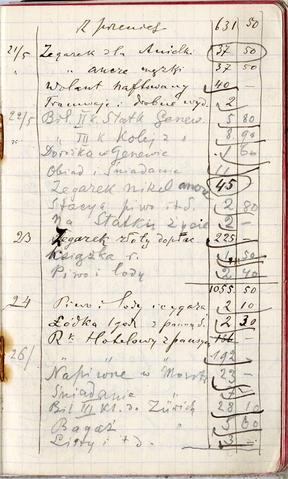 Z przenies 631 50
21/5 Zegarek dla Anielki 37 50
" " ancre męzki 37 50
Wolant haftowany 40 —
Tramwaje i drobne wyd. 2
22/5 Bil II k Statk Genew. 5 80
" " III k Kolej z " 8 90
Dorożka w Genewie 1 60
Obiad i Śniadanie 11
Zegarek nikel ancre 45
Stacya, piwo i t.d. 2 80
Na Statku życie 2 —
23 Zegarek złoty dopłac. 225 —
Książka r. 1 50
Piwo i lody 2 40
1055 50
24 Piwo i lody i cygara 2 10
Łódka 1 god. z przewoź. 2 30
Rk Hotelowy z
192
26/ " " "
Napiwne w 23 —
Śniadanie " 7
Bil III kl. do Zürich 28 10
Bagaż 5 60
Listy i t. d. 3 —